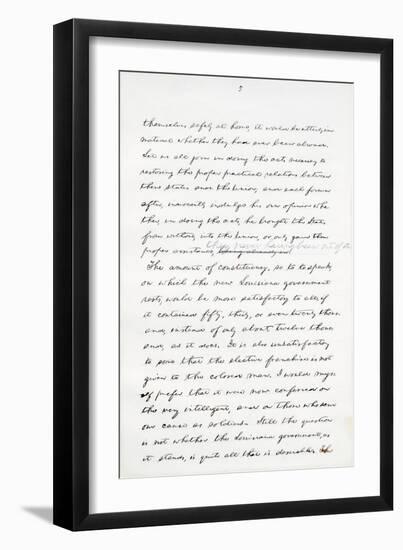 5
themselves safely at home, it would be utterly im
material whether they had ever been abroad.
Let us all join in doing the acts necessary to
restoring the proper practical relations between
these states and the Union; and each forever
after, innocently indulge his own opinion whe
ther, in doing the acts, he brought the States
from without, into the Union, or only gave them
proper assistance, they never having been out of it
The amount of constituency, so to speak,
on which the new Louisiana government
rests, would be more satisfactory to all, if
it contained fifty, thirty, or even twenty thous
and, instead of only about twelve thous
and, as it does. It is also unsatisfactory
to some that the elective franchise is not
given to the colored man. I would myself
prefer that it were now conferred on
the very intelligent, and on those who serve
our cause as soldiers. Still the question
is not whether the Louisiana government, as
it stands, is quite all that is desirable. The